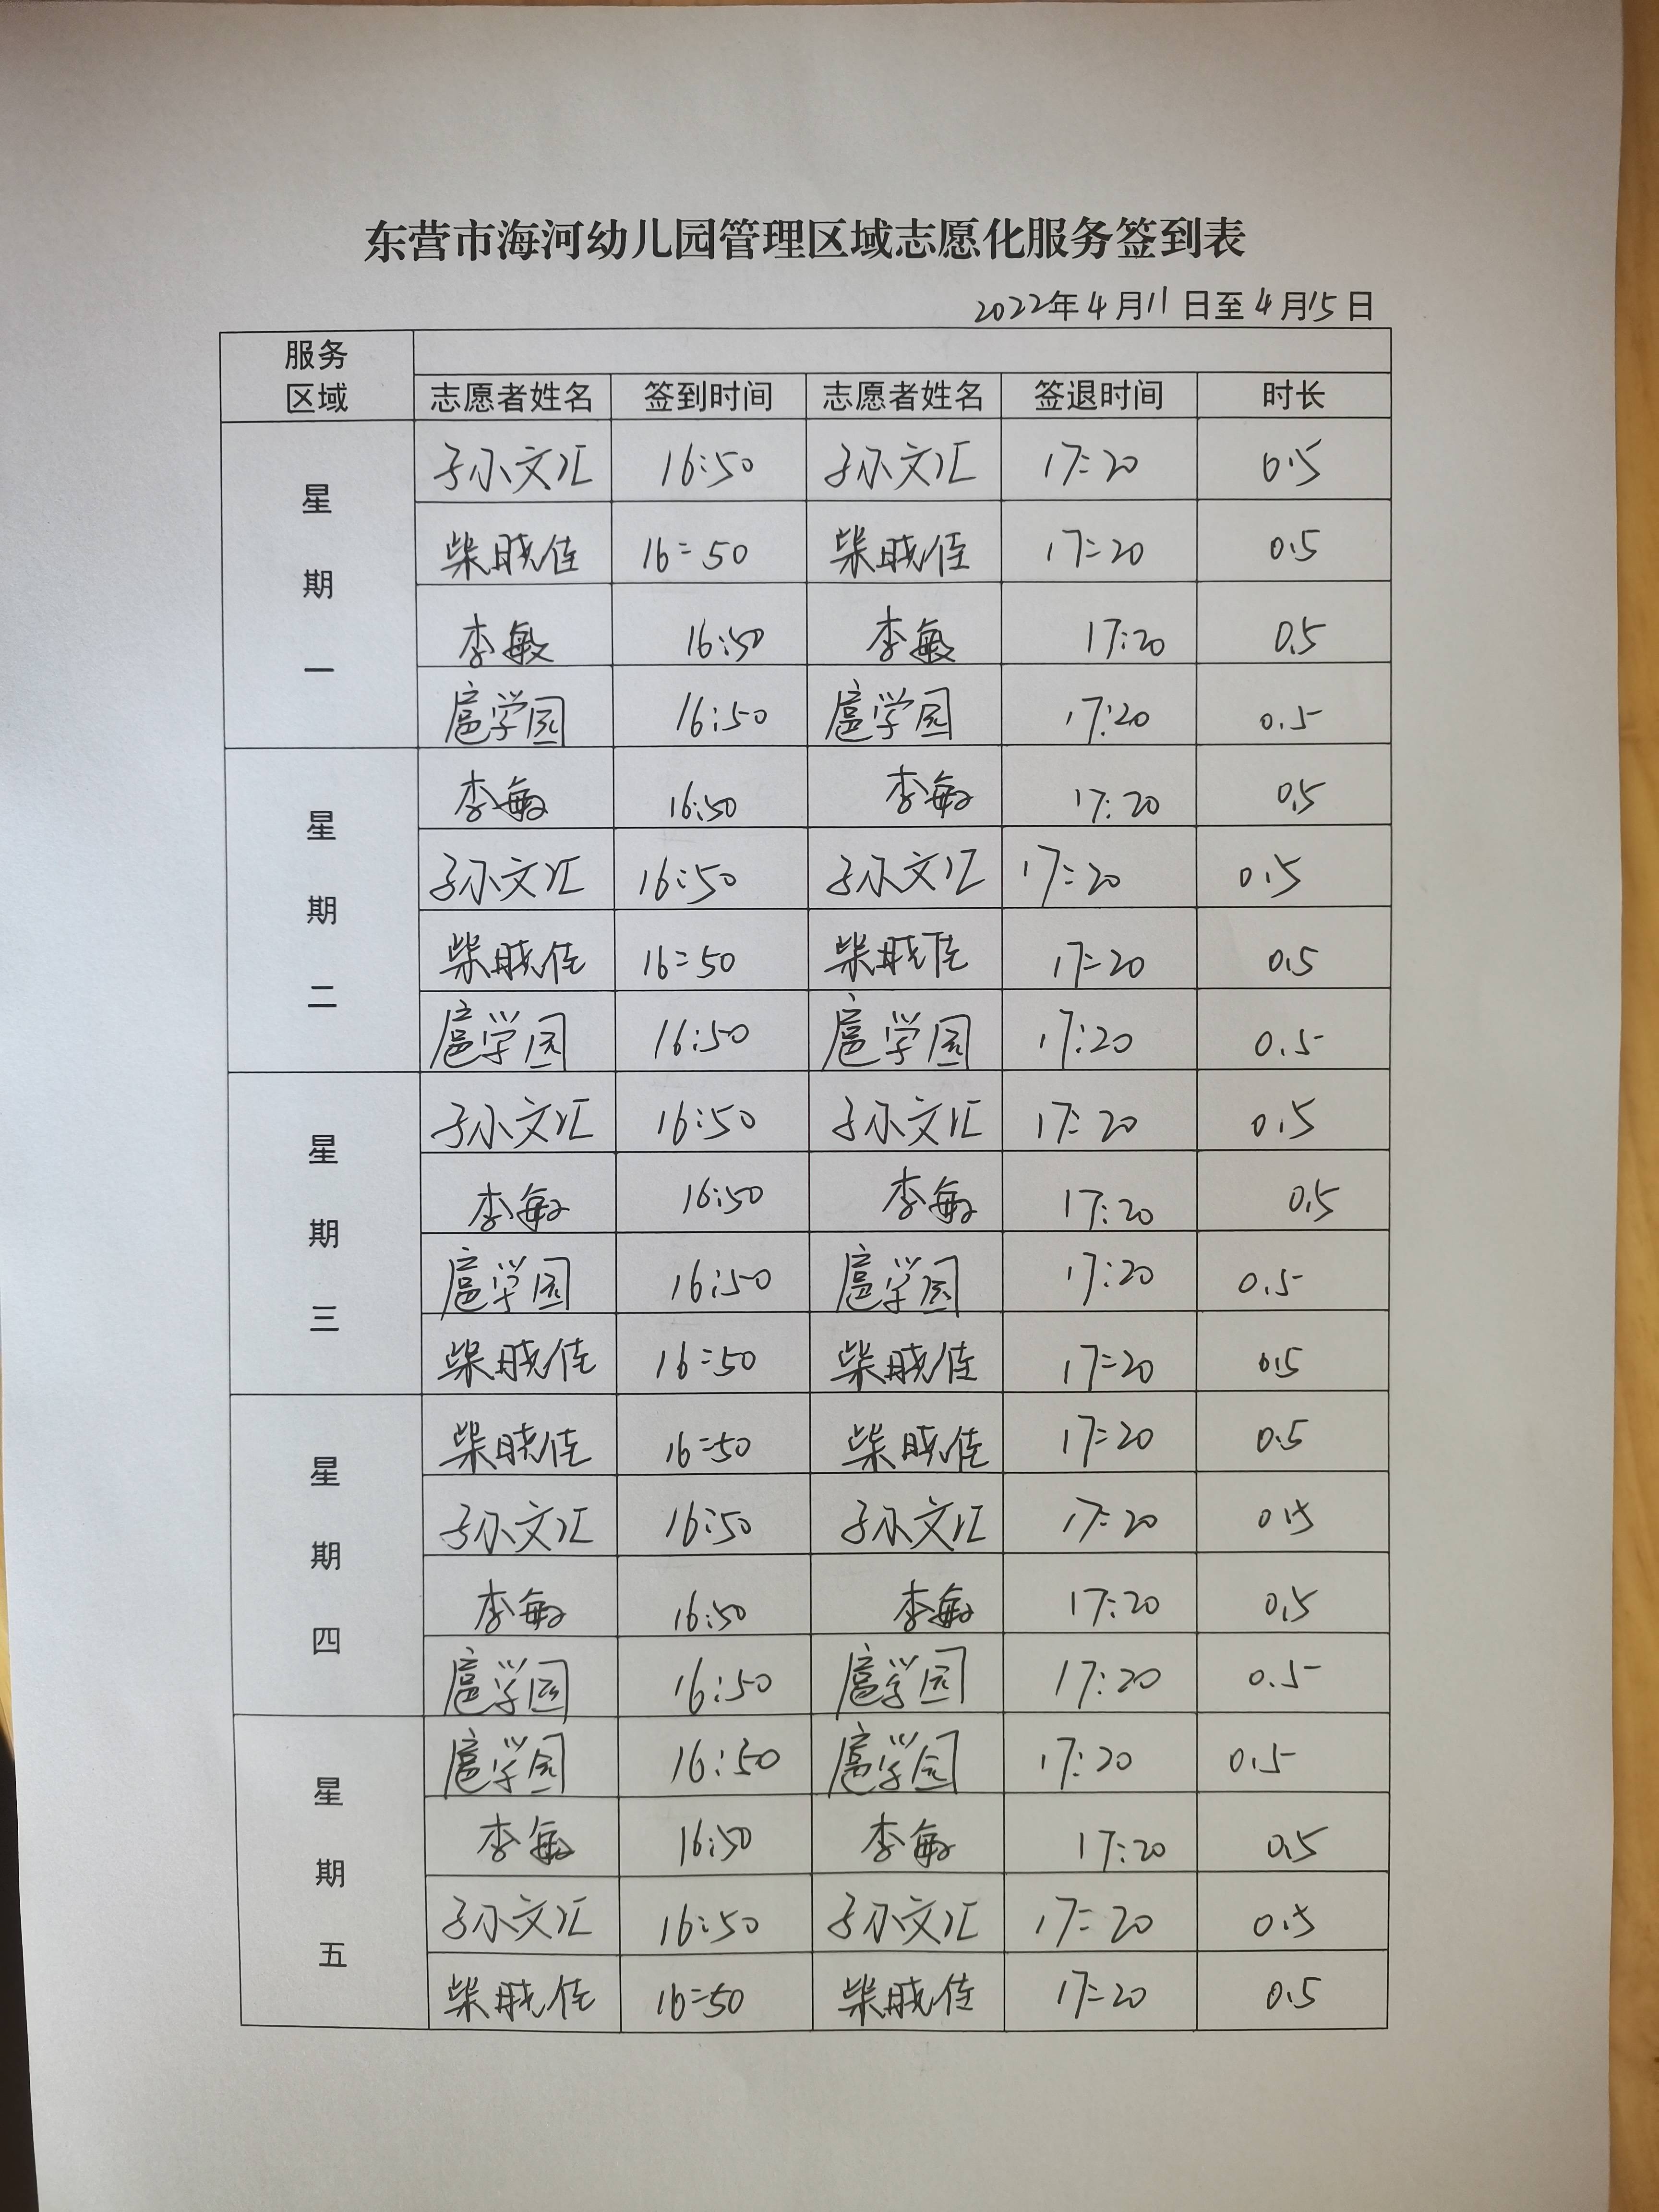 东营市海河幼儿园管理区域志愿化服务签到表
2022年4月11日至4月15日
服务
区域
志愿者姓名 签到时间 志愿者姓名 签退时间 时长
星期一
孙文汇 16:50 孙文汇 17:20 0.5
柴晓佳 16:50 柴晓佳 17:20 0.5
李敏 16:50 李敏 17:20 0.5
扈学园 16:50 扈学园 17:20 0.5
星期二
李敏 16:50 李敏 17:20 0.5
孙文汇 16:50 孙文汇 17:20 0.5
柴晓佳 16:50 柴晓佳 17:20 0.5
扈学园 16:50 扈学园 17:20 0.5
星期三
孙文汇 16:50 孙文汇 17:20 0.5
李敏 16:50 李敏 17:20 0.5
扈学园 16:50 扈学园 17:20 0.5
柴晓佳 16:50 柴晓佳 17:20 0.5
星期四
柴晓佳 16:50 柴晓佳 17:20 0.5
孙文汇 16:50 孙文汇 17:20 0.5
李敏 16:50 李敏 17:20 0.5
扈学园 16:50 扈学园 17:20 0.5
星期五
扈学园 16:50 扈学园 17:20 0.5
李敏 16:50 李敏 17:20 0.5
孙文汇 16:50 孙文汇 17:20 0.5
柴晓佳 16:50 柴晓佳 17:20 0.5